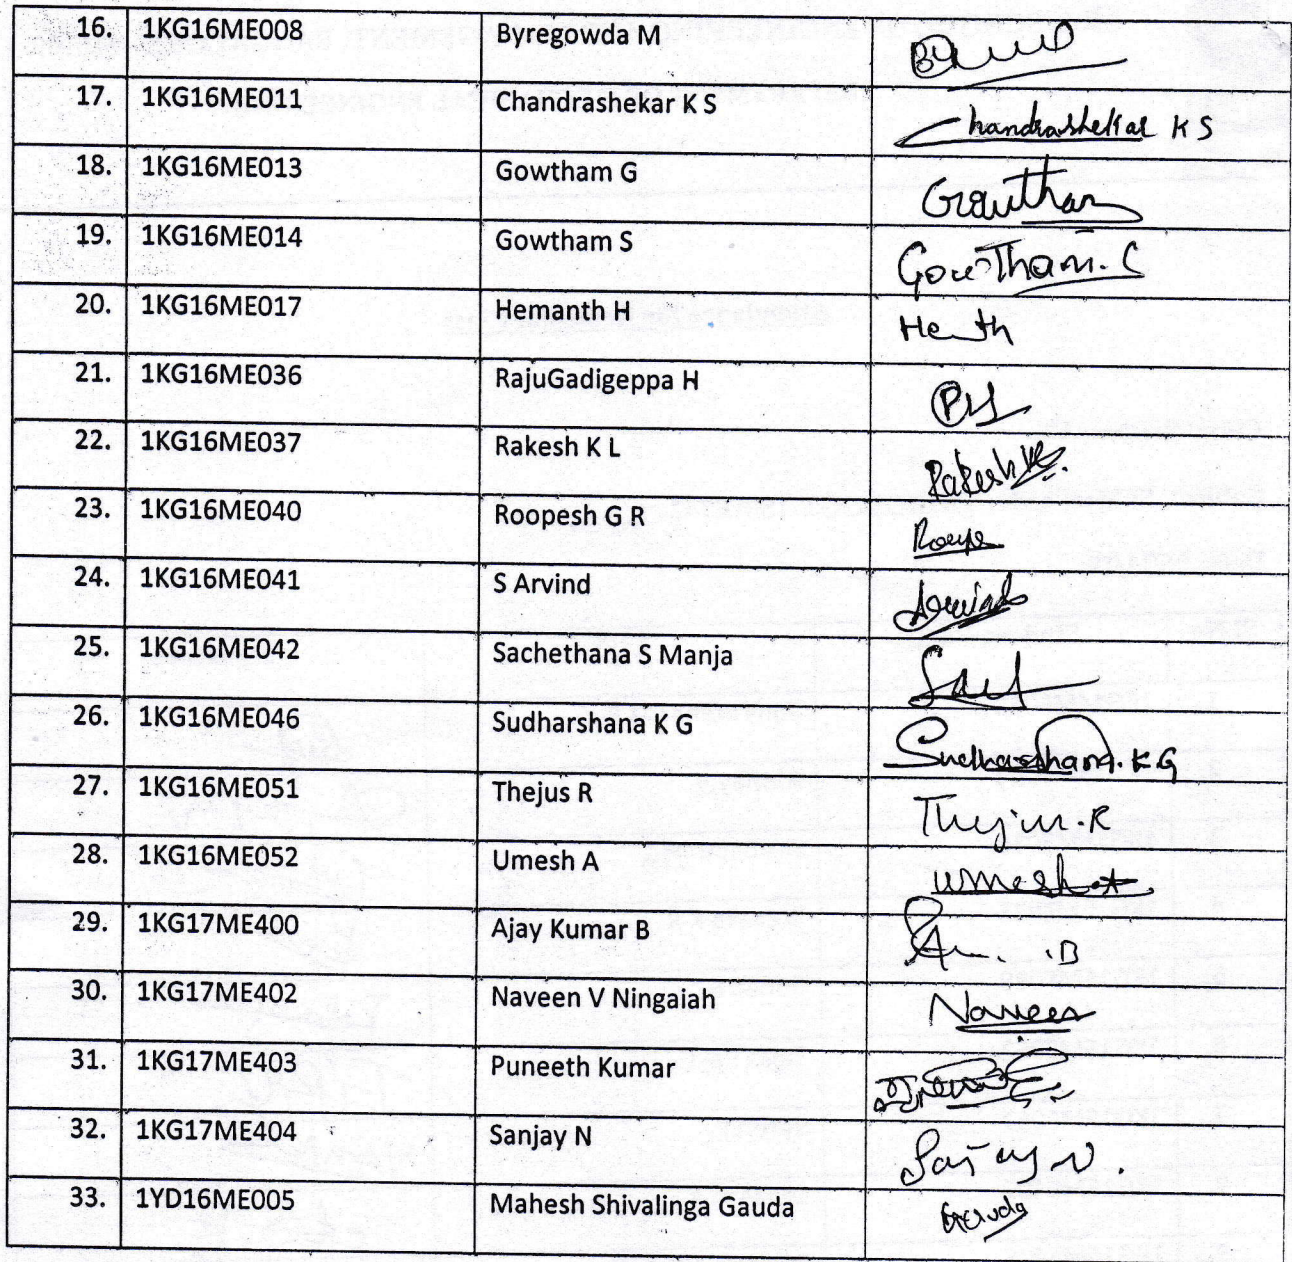 16. 1KG16ME008 Byregowda M
17. 1KG16ME011 Chandrashekar K S Chandrashekar K S
18. 1KG16ME013 Gowtham G Gowtham
19. 1KG16ME014 Gowtham S Gowtham. S
20. 1KG16ME017 Hemanth H
21. 1KG16ME036 RajuGadigeppa H
22. 1KG16ME037 Rakesh K L Rakesh KL
23. 1KG16ME040 Roopesh G R
24. 1KG16ME041 S Arvind Arvind
25. 1KG16ME042 Sachethana S Manja
26. 1KG16ME046 Sudharshana K G Sudharshana. K G
27. 1KG16ME051 Thejus R Thejus. R
28. 1KG16ME052 Umesh A Umesh. A
29. 1KG17ME400 Ajay Kumar B
30. 1KG17ME402 Naveen V Ningaiah Naveen
31. 1KG17ME403 Puneeth Kumar
32. 1KG17ME404 Sanjay N Sanjay N.
33. 1YD16ME005 Mahesh Shivalinga Gauda Gauda